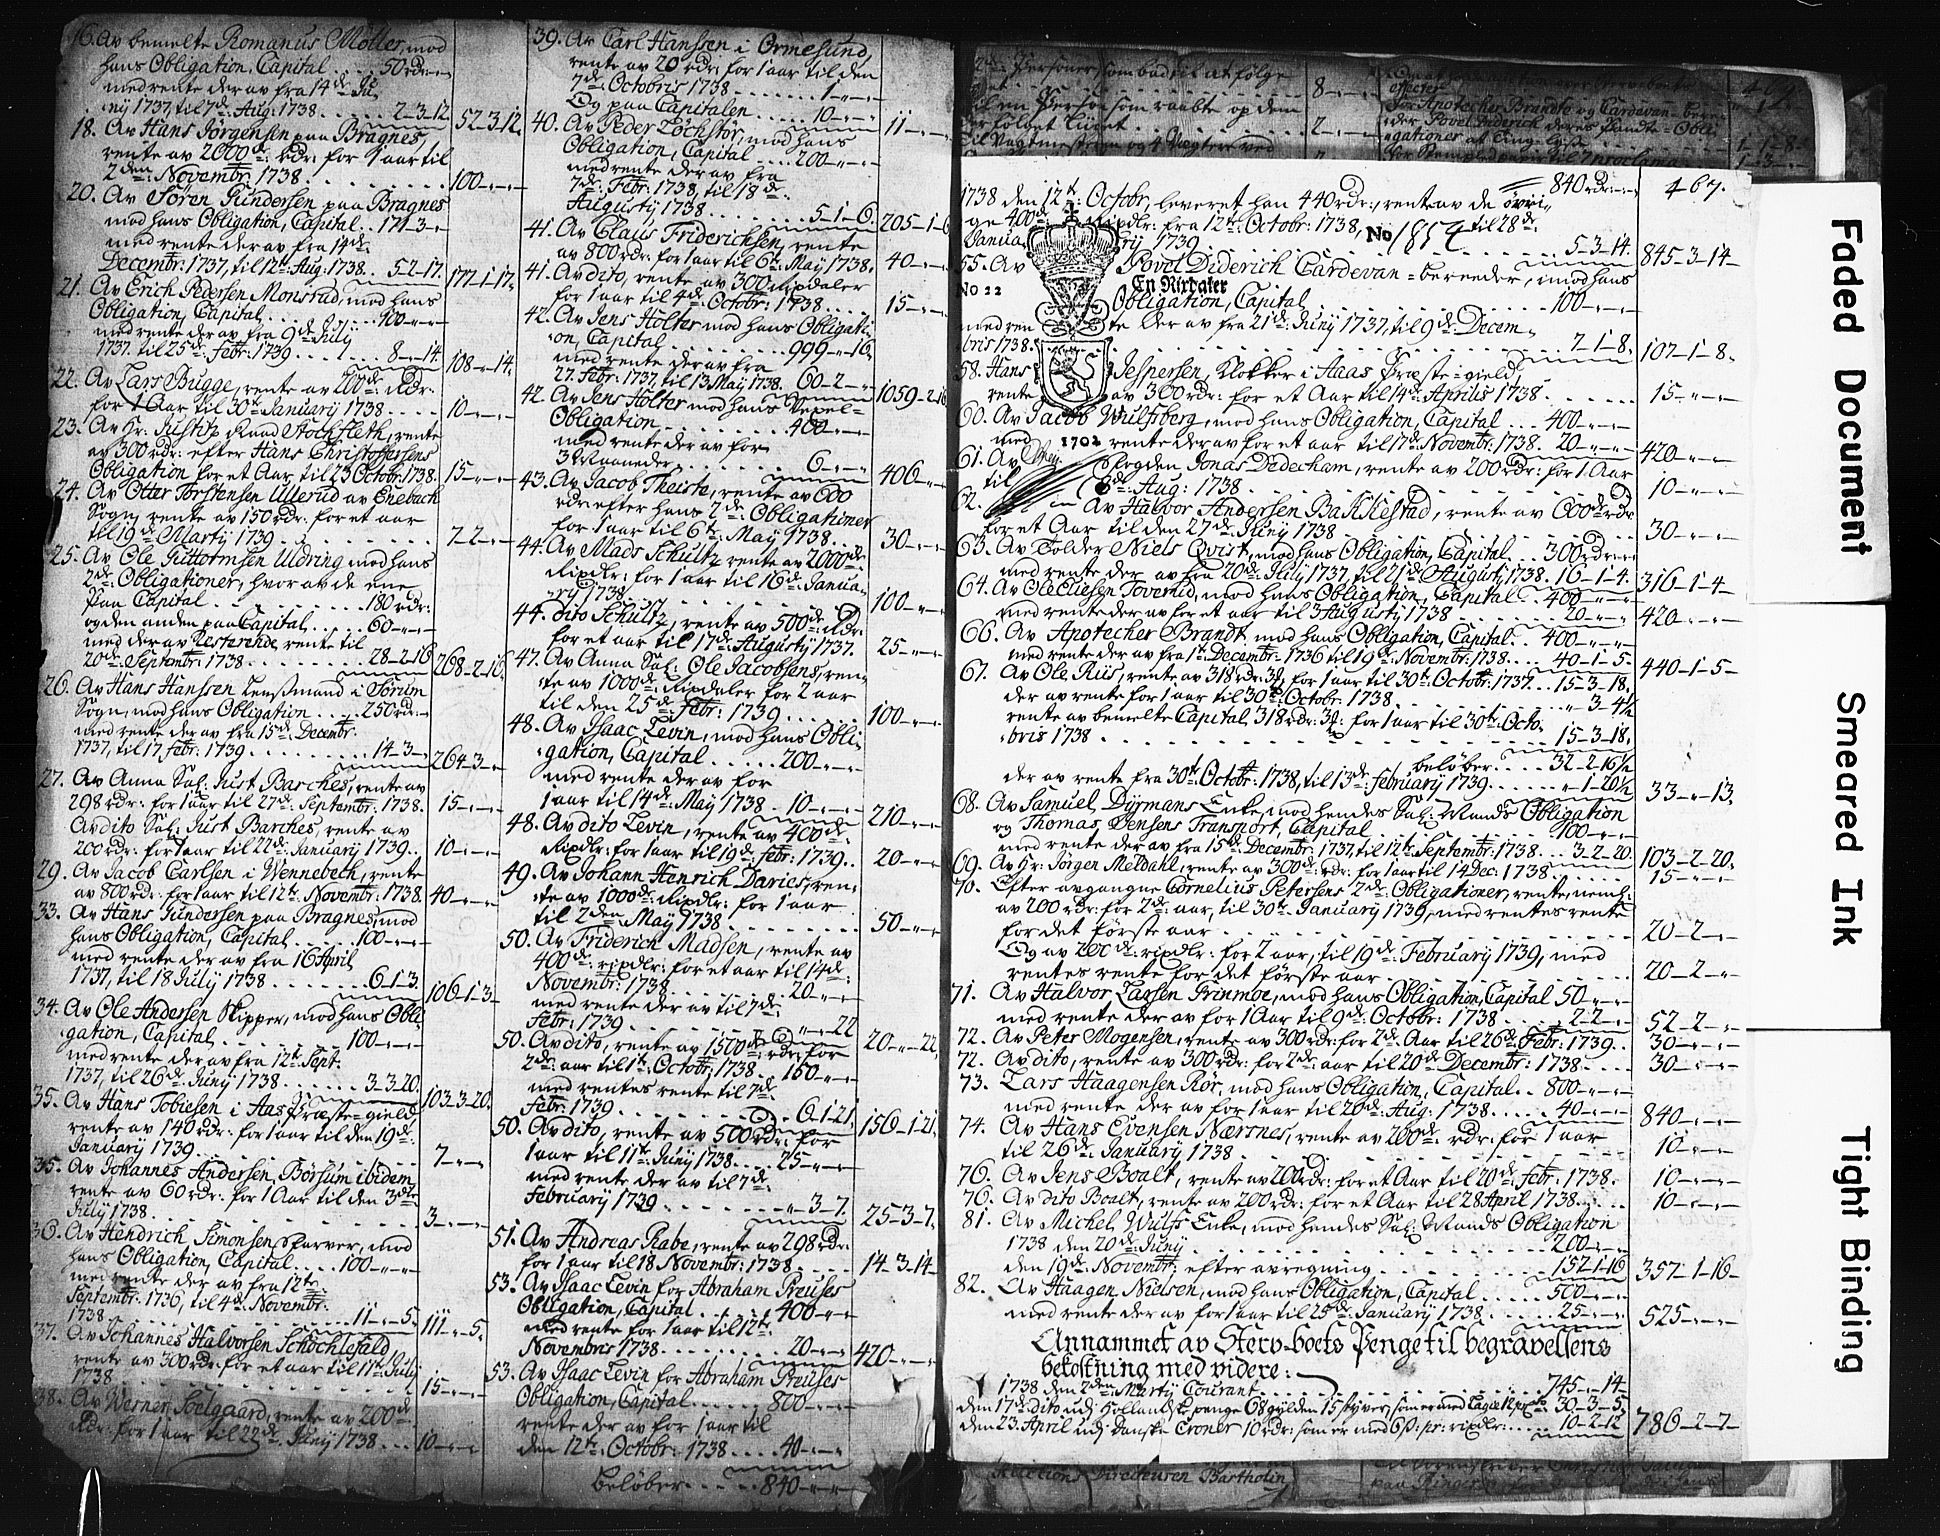 16. Av bemelte Romanus Møller, mod
hans Obligation, Capital .... 50 rdr:-"-
med rente der av fra 14de Ju,
ny 1737, til 7de Aug: 1738 ..... 2-3-12. 52-3-12.
18. Av Hans Jørgensen paa Bragnes,
rente av 2000de: rdr: for 1 aar til
2den: Novembr: 1738. 100-"-"-
20. Av Søren Gundersen paa Bragnes
mod hans Obligation, Capital .. 171-3-"-
med rente der av fra 14de:
Decembr: 1737, til 12te: Aug: 1738. 5-2-17. 177-1-17.
21. Av Erich Pedersen Monstad, mod hans
Obligation, Capital ........ 100-"-"-
med rente der av fra 9de July
1737. til 25de: Febr: 1739 ..... 8-"-14. 108-"-14.
22. Av Lars Bugge, rente av 200de: rdr.
for 1 Aar til 30te: January 1738 .... 10-"-"-
23. Av Hr: Justitz Raad Stochfleth, rente
av 300 rdr: efter Hans Christophersens
Obligation for et Aar, til 23 Octobr: 1738. 15-"-"-
24. Av Otter Torstensen Ullerud av Enebach
Sogn, rente av 150 rdr: for et aar
til 19de: Marty 1739 7-2-"-
25. Av Ole Guttormsen Uldring mod hans
2de: Obligationer, hvor av de ene
Paa Capital ............ 180 rdr:
og den anden paa Capital ..... 60-"-"-
med der av Resterende rente til
20de: Septembr: 1738 .......... 28-2-16 268-2-16.
26. Av Hans Hanssen Lensmand i Sørum
Sogn, mod hans Obligation .... 250 rdr:-
med rente der av fra 15de: Decembr:
1737, til 17 Febr: 1739 ......... 14-3- 264-3-"-
27. Av Anna Sal: Just Barches, rente av
298 rdr: for 1 aar til 27de: Septembr: 1738. 15-"-"-
Av dito Sal: Just Barches, rente av
200 rdr: for 1 aar til 22de: January 1739. 10-"-"-
29. Av Jacob Carlsen i Wennebech, rente
av 800 rdr: for 1 aar til 12te: Novembr: 1738. 40-"-"-
33. Av Hans Gundersen paa Bragnes, mod
hans Obligation, Capital ...... 100-"-"-
med rente der av fra 16 April
1737, til 18 July 1738 ........ 6-1-3. 106-1-3-
34. Av Ole Andersen Skipper, mod hans Obli,
gation, Capital ........ 100-"-"-
med rente der av fra 12te Sept:
1737, til 26de: Juny 1738 ...... 3-3-20. 103-3-20.
35. Av Hans Tobiesen i Aas Præste-gield
rente av 140 rdr: for 1 aar til den 19de:
January 1739 7-"-"-
35. Av Johannes Andersen, Borsum ibidem,
rente av 60 rdr: for 1 Aar til den 3die
July 1738 3-"-"-
36. Av Hendrich Simonsen, Farver, mod
hans Obligation, Capital .... 100-"-"-
med rente der av fra 12te
Septembr: 1736, til 4de: Novembr:
1738 ............ 11-"-5. 111-"-5.
37. Av Johannes Halvorsen Schochlefald
rente av 300 rdr: for et aar til 17te: July
1738 15-"-"-
38. Av Werner Soelgaard, rente av 200de:
rdr: for 1 aar til 22de: Juny 1738 ... 10-"-"-
39. Av Carl Hanssen i Ormesund,
rente av 20 rdr: for 1 aar til den
7de: Octobris 1738 ......... 1-"-"-
Og paa Capitalen ..... 10-"-"- 11-"-"-
40. Av Peder Lochstør, mod hans
Obligation, Capital ... 200-"-"-
med rente der av fra
7de: Febr: 1738, til 18de:
Augusty 1738 ........ 5-1-6. 205-1-6
41. Av Claus Friderichsen, rente
av 800 rdr: for 1 aar til 6te: May 1738. 40-"-"-
41. Av dito, rente av 300 rixdaler
for 1 aar til 4de: Octobr: 1738 .... 15-"-"-
42. Av Jens Holter mod hans Obligati-
on, Capital ........ 999-"-16.
med rente der av fra
27. Febr: 1737, til 13 May 1738. 60-2-"- 1059-2-16
42. Av Jens Holter mod hans Vexel-
Obligation ......... 400-"-"-
med rente der av for
3 Maaneder ....... 6-"-"- 406-"-"-
43. Av Jacob Theiste, rente av 600
rdr: efter hans 2de: Obligationer
for 1 aar til 6te: May 1738 .... 30-"-"-
44. Av Mads Schultz, rente av 2000de:
Rixdlr: for 1 aar til 16de: Janua-
ry 1738. 100-"-"-
44. dito Schultz, rente av 500de: rdr:
for et aar til 17de: Augusty 1737. 25-"-"-
47. Av Anna Sal: Ole Jacobsens, ren-
te av 1000de: Rixdaler for 2 aar
til den 25de: Febr: 1739 ..... 100-"-"-
48. Av Isaac Levin, mod hans Obli-
gation, Capital ..... 200-"-"-
med rente der av for
1 aar til 14de: May 1738. 10-"-"- 210-"-"-
48. Av dito Levin, rente av 400de:
Rixdlr: for 1 aar til 19de: Febr: 1739. 20-"-"-
49. Av Johann Henrich Daries, ren-
te av 1000de: Rixdlr: for 1 aar
til 2den May 1738 ........ 50-"-"-
50. Av Friderich Madsen, rente av
400de: rixdlr: for et aar til 14de:
Novembr: 1738 ....... 20-"-"-
med rente der av til 7de:
Febr: 1739 ........ "-"-22 20-"-22.
50. Av dito, rente av 1500de: rdr: for
2de: aar til 1te: Octobr: 1738. 150-"-"-
med rentes rente til 7de:
Febr: 1739 ......... 6-1-21. 156-1-21.
50. Av dito, rente av 500 rdr: for
1 aar til 11te: Juny 1738 ... 25-"-"-
med rente der av til 7de:
February 1739 ......... "-3-7. 25-3-7.
51. Av Andreas Rabe, rente av 298 rdr:
for 1 aar til 18 Novembr: 1738 .... 14-3-14
53. Av Isaac Levin for Abraham Preuses
Obligation, Capital ..... 400-"-"-
med rente for 1 aar til 12te:
Novembris 1738 ........ 20-"-"- 420-"-"-
53. Av Isaac Levin for Abraham Preuses
Obligation, Capital ..... 800-"-"-
rente der av for 1 aar til
den 12te: Octobr: 1738 .... 40-"-"-
beløber ..... 840-"-"-
Personer, som bad til at følge
8-"-"-
Person som raabte op dem
2-"-"-
Til Vagtmesteren og 4 Vægtere ved
for Apotecher Brandts og Cardevan-bere-
der Povel Diderich deres Pandte-Obli-
gationer at Tinglyse 1-1-8-
for Stemplet papir til 7 proclama 1-3-"-
840 rdr:-"- 467.
1738 den 12te: Octobr, leveret han 440 rdr:, rente av de øvri-
ge 400de: Rixdlr: fra 12te: Octobr: 1738, No 1814 til 28de:
Janua ry 1739 5-3-14. 845-3-14-
55. Av Povel Diderich Cardevan-bereeder, mod hans
No 22 En Rixdaler
Obligation, Capital ........ 100-"-"-
med ren te der av fra 21de: Juny 1737, til 9de: Decem-
bris 1738. 7-1-8. 107-1-8.
58. Hans Jespersen, Klokker i Aaas Præste-gield,
rente av 300 rdr: for et Aar til 14de: Aprilis 1738. 15-"-"-
60. Av Jacob Wulfsberg, mod hans Obligation, Capital .... 400-"-"-
med 1702 rente der av for et aar til 17de: Novembr: 1738. 20-"-"- 420-"-"-
61. Av Fogden Jonas Dedecham, rente av 200 rdr: for 1 Aar
til 8de: Aug: 1738 10-"-"-
62. Av Halvor Andersen Bakkestad, rente av 600de rdr
for et Aar til den 27de: Juny 1738 30-"-"-
63. Av Tolder Niels Qvist, mod hans Obligation, Capital .. 300 rdr:-"-
med rente der av fra 20de: July 1737, til 21de: Augusty 1738. 16-1-4. 316-1-4-
64. Av Ole Eliesen Tovemid, mod hans Obligation, Capital .. 400-"-"-
med rente der av for et aar til 3 Augusty 1738 20-"-"- 420-"-"-
66. Av Apotecher Brandt, mod hans Obligation, Capital .. 400-"-"-
med rente der av fra 1te: Decembr: 1736 til 19de: Novembr: 1738 .... 40-1-5- 440-1-5-
67. Av Ole Riis, rente av 318 rdr: 3 , for 1 aar til 30te: Octobr: 1737 ... 15-3-18.
der av rente for 1 aar til 30te: Octobr: 1738 "-3-4½
rente av bemelte Capital 318 rdr: 3 : for 1 aar til 30te: Octo-
bris 1738 15-3-18.
beløber .... 32-2-16½
der av rente fra 30te: Octobr: 1738, til 13de: February 1739 ...... "-1-20½ 33-"-13.
68. Av Samuel Dyrmans Enke, mod hendes Sal: Mands Obligation
og Thomas Jensens Transport, Capital 100-"-"-
med rente der av fra 15de: Decembr: 1737, til 12te: Septembr: 1738 ... 3-2-20. 103-2-20.
69. Av Hr: Jørgen Meldahl, rente av 300de: rdr: for 1 aar til 14 Dec: 1738 15-"-"-
70. Efter avgangne Cornelius Petersens 2de: Obligationer, rente, neml:
av 200 rdr: for 2de: aar, til 30te: January 1739, med rentes rente
for det første aar 20-2-"-
Og av 200de: rixdlr: for 2 aar, til 19de: February 1739, med
rentes rente for det første aar 20-2-"-
71. Av Halvor Larsen Grinmoe, mod hans Obligation, Capital 50-"-"-
med rente der av for 1 Aar til 9de: Octobr: 1738 ..... 2-2-"- 52-2-"-
72. Av Peter Mogensen, rente av 300 rdr: for 2de: Aar til 26de: Febr: 1739. 30-"-"-
72. Av dito, rente av 300 rdr: for 2de: aar til 20de: Decembr: 1738 .... 30-"-"-
73. Lars Haagensen Rør, mod hans Obligation, Capital .. 800-"-"-
med rente der av for 1 aar til 20de: Aug: 1738 ...... 40-"-"- 840-"-"-
74. Av Hans Evensen Nærsnes, rente av 200de: rdr: for 1 aar
til 26de: January 1738 10-"-"-
76. Av Jens Boalt, rente av 200 rdr: for et Aar til 20de: Febr: 1738. 10-"-"-
76. Av dito Boalt, rente av 200 rdr: for et Aar til 28 April 1738 .... 10-"-"-
81. Av Michel Wulfs Enke, mod hendes Sal: Mands Obligation
1738 den 20de: Juny 200-"-"-
den 19de: Novembr: efter avregning 157-1-16 357-1-16-
82. Av Haagen Nielsen, mod hans Obligation, Capital 500-"-"-
med rente der av for 1 aar til 25de: January 1738 25-"-"- 525-"-"-
Annammet av Sterv-boets Penge til begravelsens
bekostning med videre:
1738 den 2den: Marty Courant 745-"-14-
den 17de: dito udj Hollandsk penge 68 gylden 15 styver, som er med Lagie 12 prcto 30-3-5.
den 23. April udj Danske Croner 10 rdr: som er med 6 ß: pr: rixdlr: ..... 10-2-12 786-2-7-
Auctions Directeuren Bartholin
Faded Document
Smeared Ink
Tight Binding